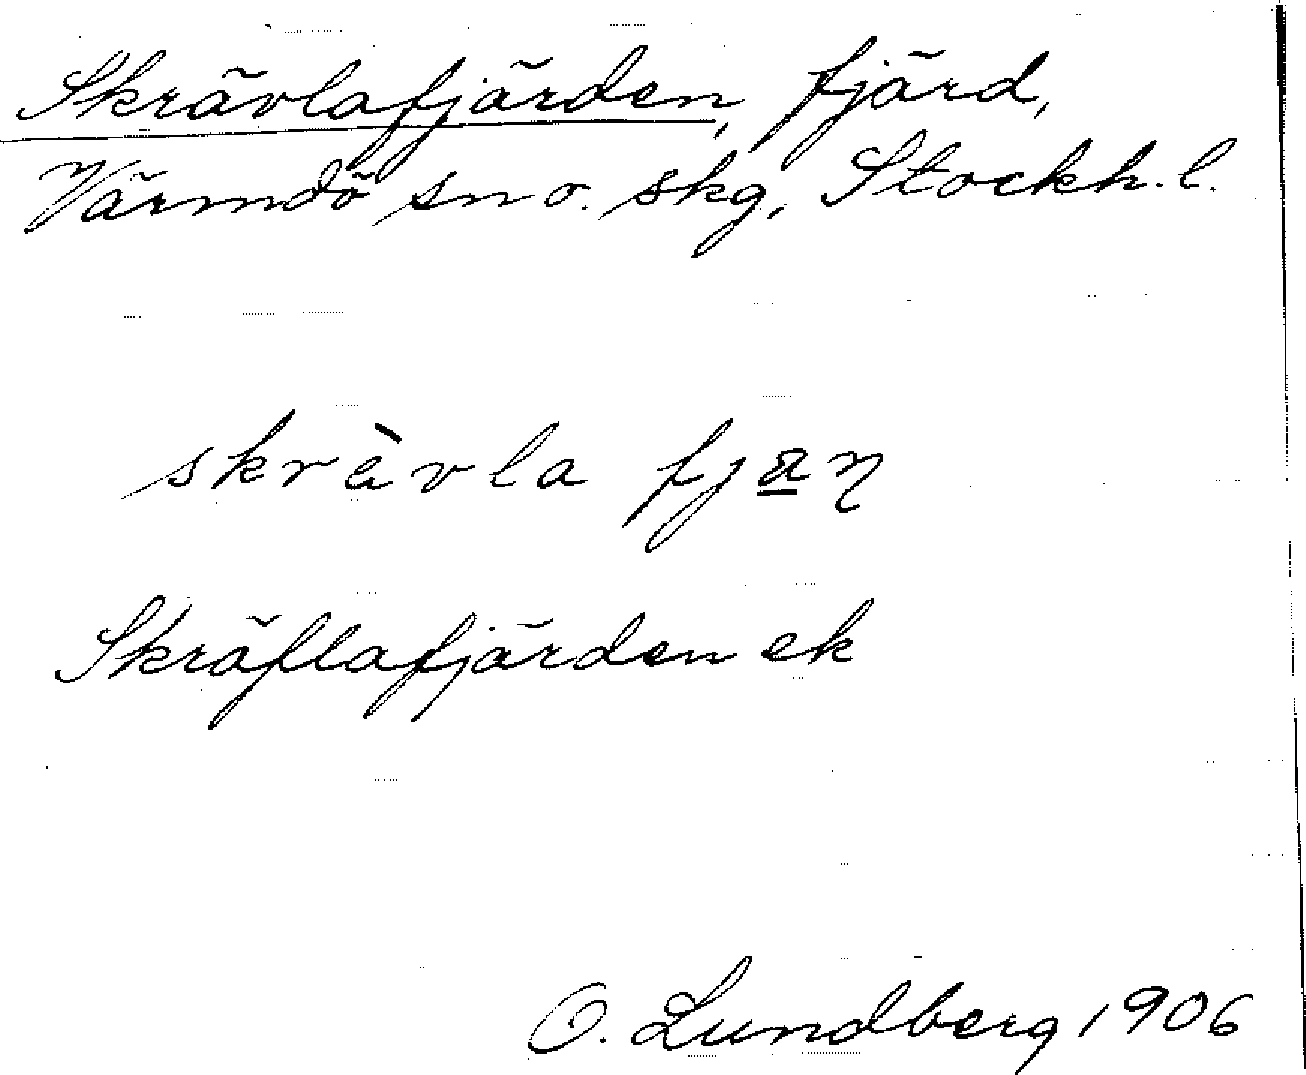 Skrävlafjärden, fjärd,
Värmdö sn o. skg, Stockh. l.
skrävla
Skräflafjärden ek
O. Lundberg 1906